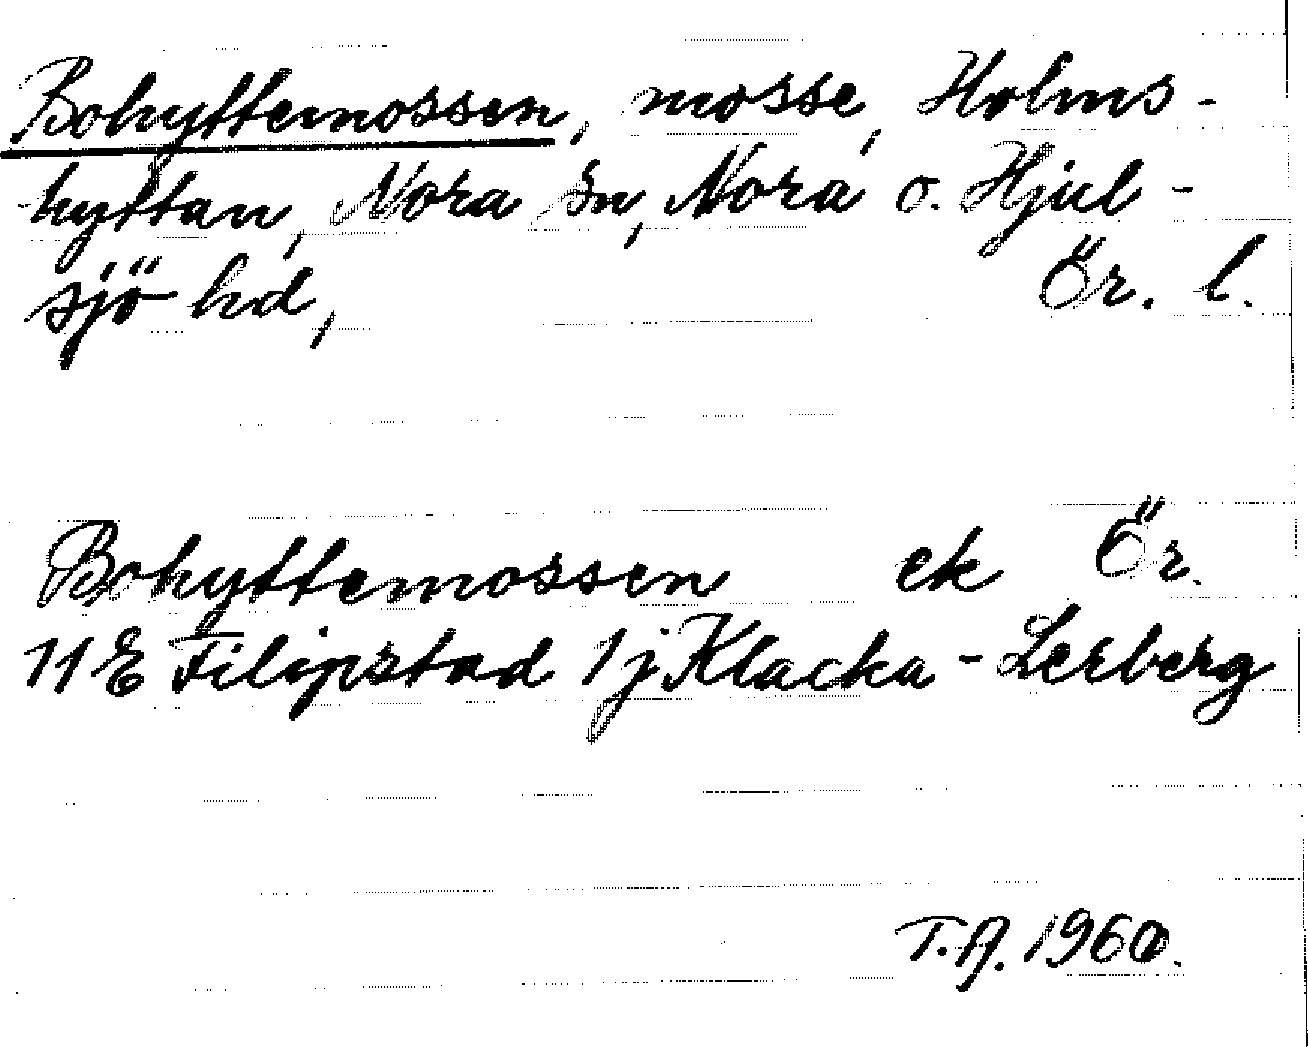 Bohyttemossen, mosse, Holms-
hyttan, Nora sn, Nora o. Hjul-
sjö hd, Ör. l.
Bohyttemossen ek Ör.
11E Filipstad 1j Klacka-Lerberg
T.A. 1960.